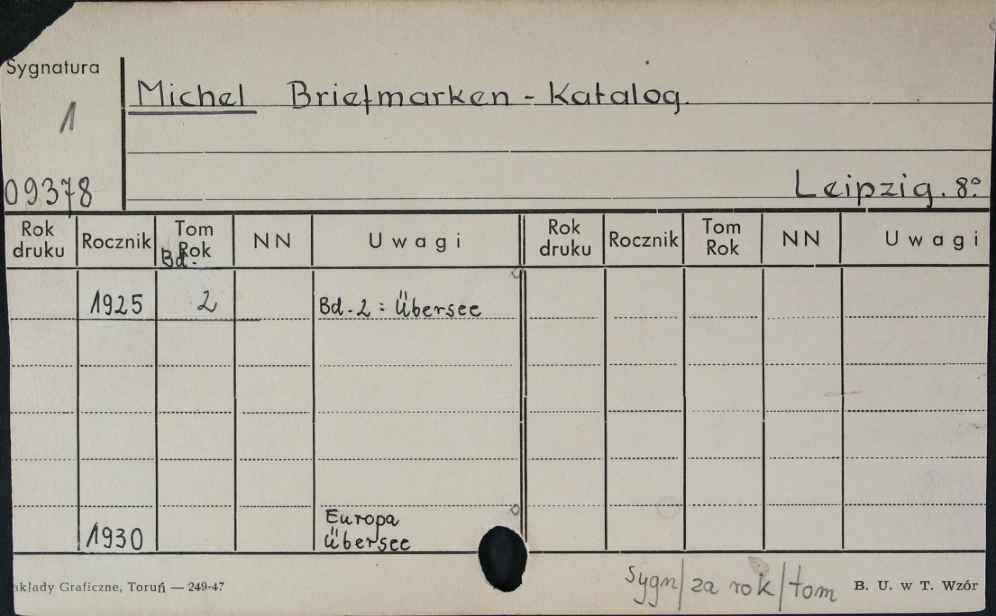 Sygnatura
1
Michel Briefmarken - Katalog.
09378
Leipzig. 8°
Rok druku Rocznik Tom Bd. Rok NN Uwagi Rok druku Rocznik Tom Rok NN Uwagi
1925 2 Bd. 2 : Übersee
Europa
1930 Übersee
akłady Graficzne, Toruń — 249-47 Sygn/za rok/tom B. U. w T. Wzór